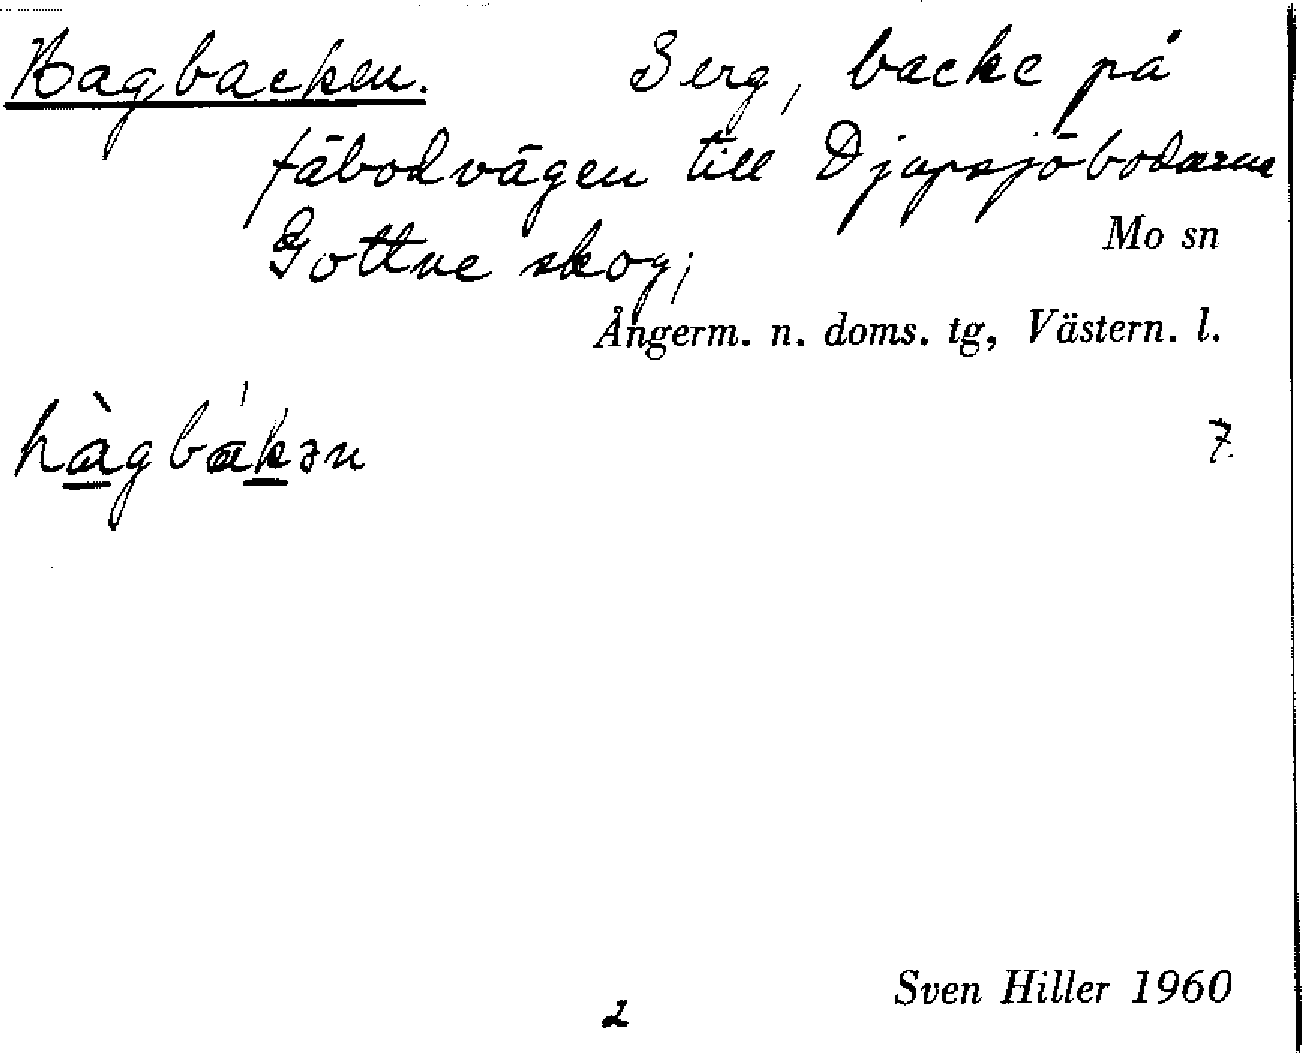 Hagbacken. Berg, backe på
fäbodvägen till Djupsjöbodarna
Gottne skog;
Mo sn
Ångerm. n. doms. tg, Västern. l.
hàgbákən
7.
Sven Hiller 1960
2